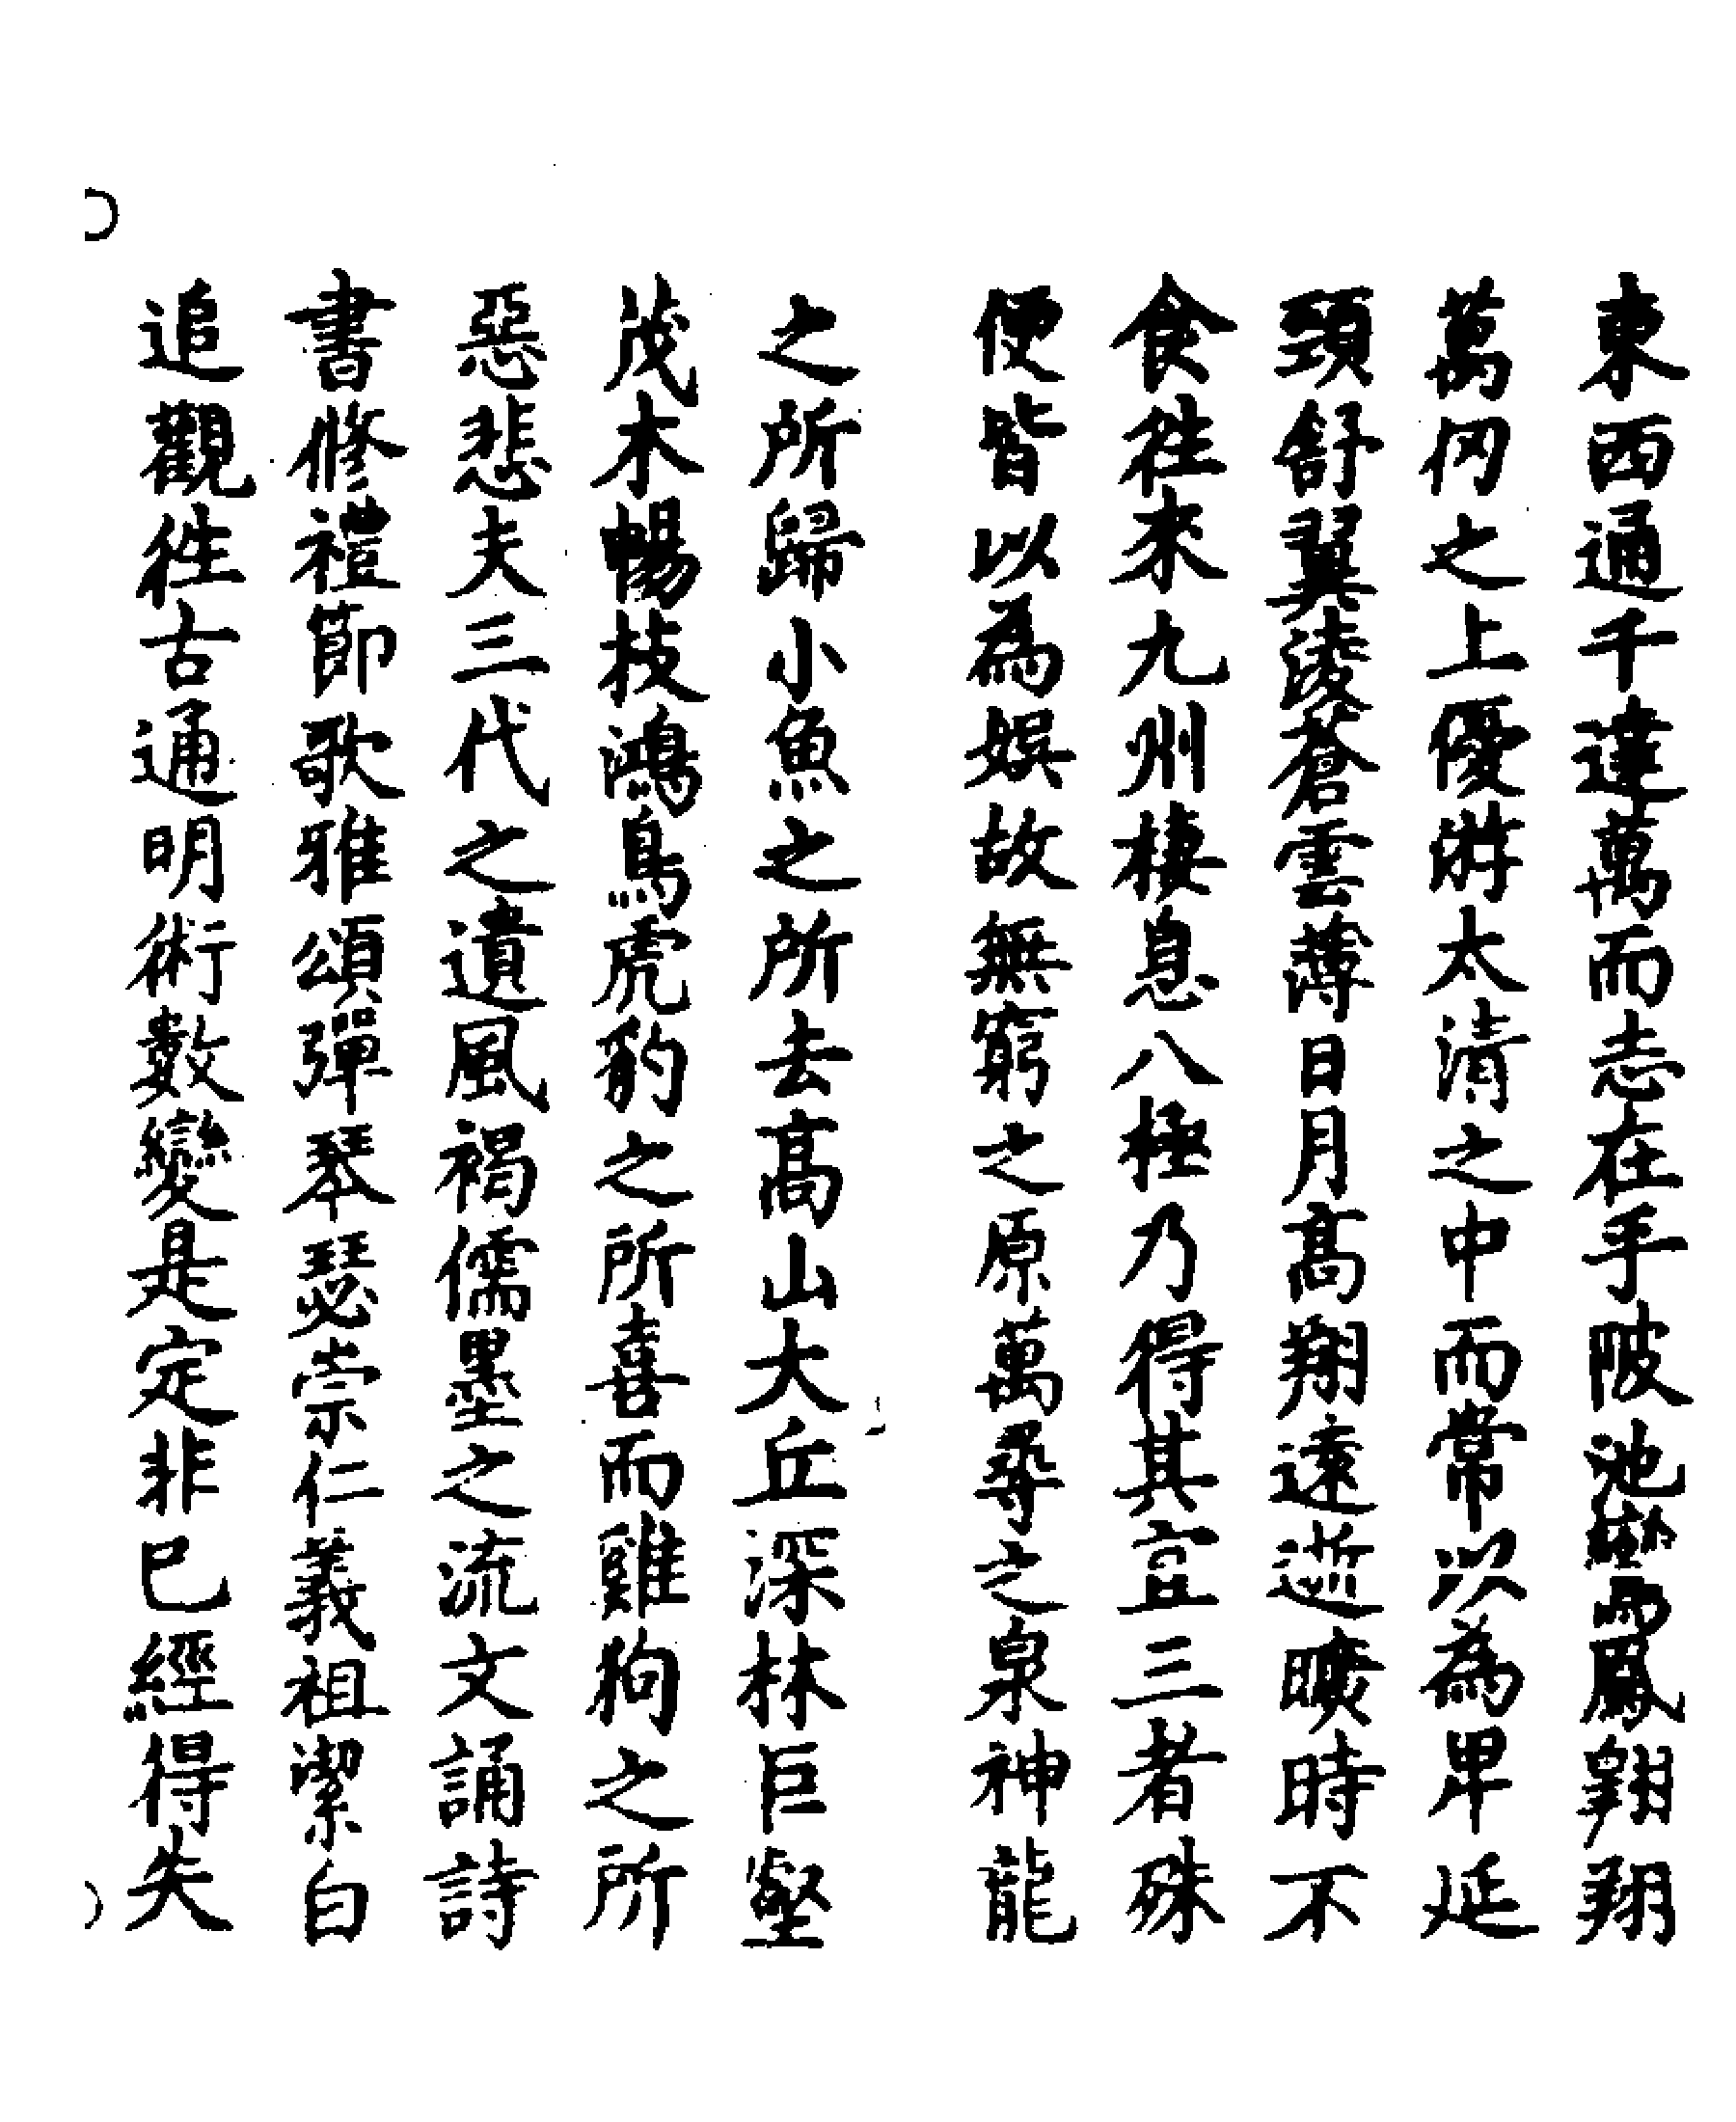 東西通千達萬而志在手陂池鸞鳳翱翔
萬仞之上優游太清之中而常以為卑延
頸舒翼淩蒼雲薄日月高翔遠逝曠時不
食往來九州棲息八極乃得其宜三者殊
便皆以為娛故無窮之原萬尋之泉神龍
之所歸小魚之所去高山大丘深林巨壑
茂木暢枝鴻鳥虎豹之所喜而雞狗之所
惡悲夫三代之遺風褐儒墨之流文誦詩
書修禮節歌雅頌彈琴瑟崇仁義祖潔白
追觀往古通明術數變是定非已經得失